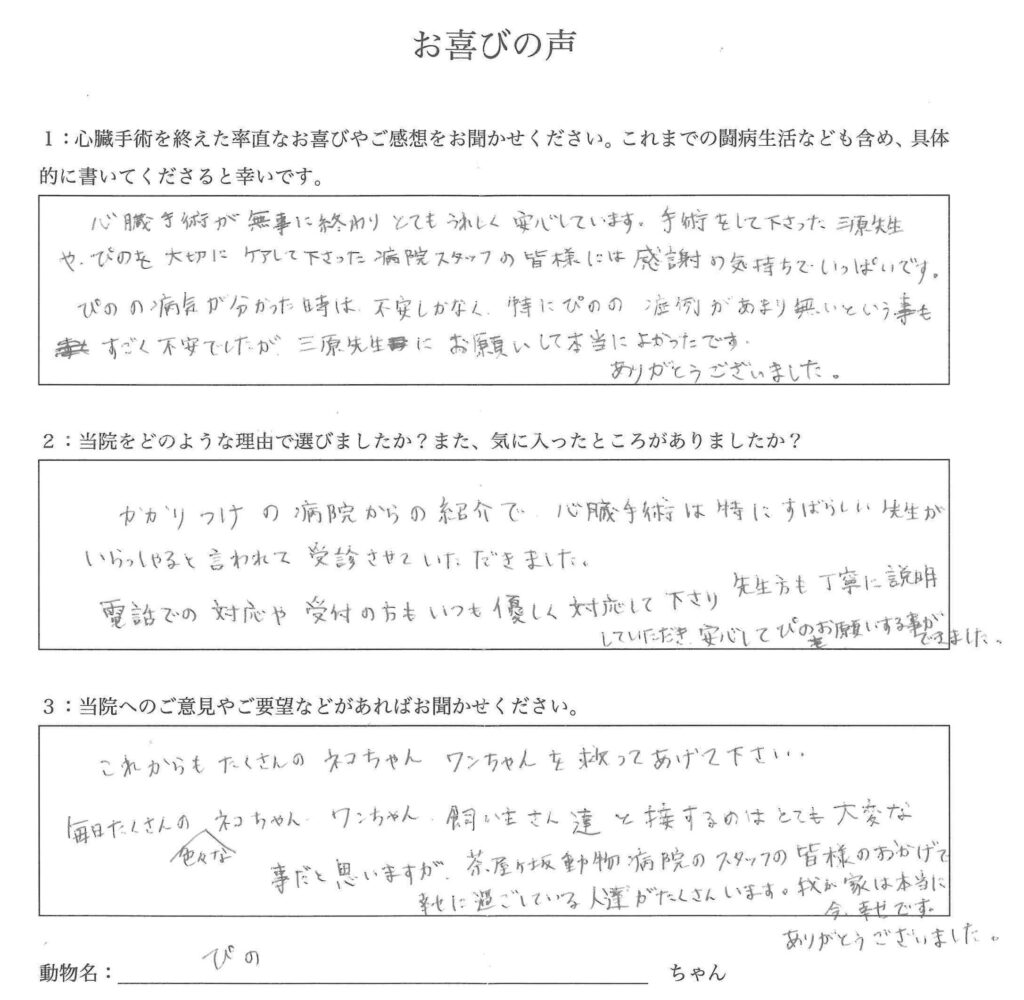 お喜びの声
1：心臓手術を終えた率直なお喜びやご感想をお聞かせください。これまでの闘病生活なども含め、具体
的に書いてくださると幸いです。
心臓手術が無事に終わりとてもうれしく安心しています。手術をして下さった三原先生
や、ぴのを大切にケアして下さった病院スタッフの皆様には感謝の気持ちでいっぱいです。
ぴのの病気が分かった時は、不安しかなく、特にぴのの症例があまり無いという事も
すごく不安でしたが、三原先生にお願いして本当によかったです。
ありがとうございました。
2：当院をどのような理由で選びましたか？また、気に入ったところがありましたか？
かかりつけの病院からの紹介で、心臓手術は特にすばらしい先生が
いらっしゃると言われて受診させていただきました。
電話での対応や受付の方もいつも優しく対応して下さり先生方も丁寧に説明
していただき、安心してぴのをお願いする事ができました。
3：当院へのご意見やご要望などがあればお聞かせください。
これからもたくさんのネコちゃんワンちゃんを救ってあげて下さい。
毎日たくさんの色々なネコちゃん、ワンちゃん、飼い主さん達と接するのはとても大変な
事だと思いますが、茶屋ヶ坂動物病院のスタッフの皆様のおかげで
幸せに過ごしている人達がたくさんいます。我が家は本当に
今、幸せです。
ありがとうございました。
動物名：ぴの ちゃん